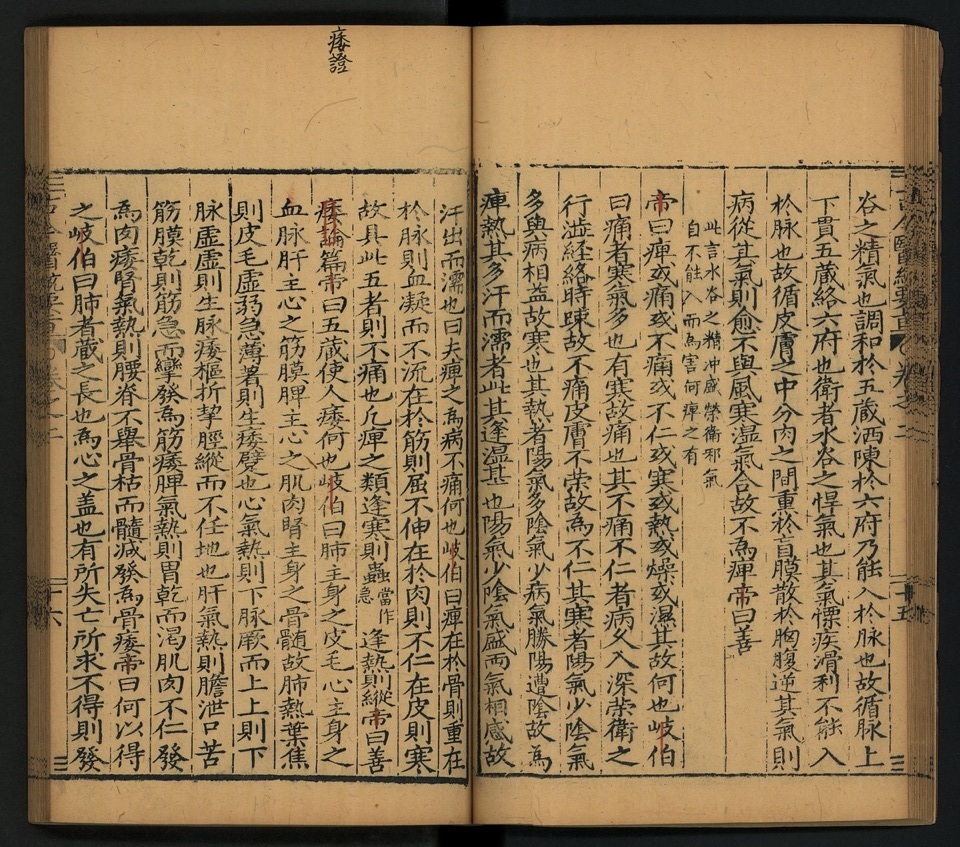 谷之精氣也調和於五蔵洒陳於六府乃能入於脉也故循脉上
下貫五蔵絡六府也衛者水谷之悍氣也其氣慓疾滑利不能入
於脉也故循皮膚之中分肉之間熏於盲膜散於胸腹逆其氣則
病從其氣則愈不與風寒湿氣合故不為痺帝曰善
此言水谷之精冲盛榮衛邪氣
自不能入而為害何痺之有
帝曰痺或痛或不痛或不仁或寒或熱或燥或濕其故何也岐伯
曰痛者寒氣多也有寒故痛也其不痛不仁者病久入深荣衛之
行澁経絡時踈故不痛皮膚不荣故為不仁其寒者陽氣少陰氣
多與病相益故寒也其熱者陽氣多陰氣少病氣勝陽遭陰故為
痺熱其多汗而濡者此其逢湿甚也陽氣少陰氣盛两氣相感故
古今醫統 卷之二
二十五
痿證
汗出而濡也曰夫痺之為病不痛何也岐伯曰痺在於骨則重在
於脉則血凝而不流在於筋則屈不伸在於肉則不仁在皮則寒
故具此五者則不痛也凢痺之類逢寒則蟲當作急逢熱則縱帝曰善
痿論篇帝曰五蔵使人痿何也岐伯曰肺主身之皮毛心主身之
血脉肝主心之筋膜脾主心之肌肉腎主身之骨髄故肺熱葉焦
則皮毛虚弱急薄著則生痿躄也心氣熱則下脉厥而上上則下
脉虚虚則生脉痿樞折挈脛縱而不任地也肝氣熱則膽泄口苦
筋膜乾則筋急而攣發為筋痿脾氣熱則胃乾而渴肌肉不仁發
為肉痿腎氣熱則腰脊不舉骨枯而髓减發為骨痿帝曰何以得
之岐伯曰肺者蔵之長也為心之盖也有所失亡所求不得則發
古今醫統 卷之二
二十六